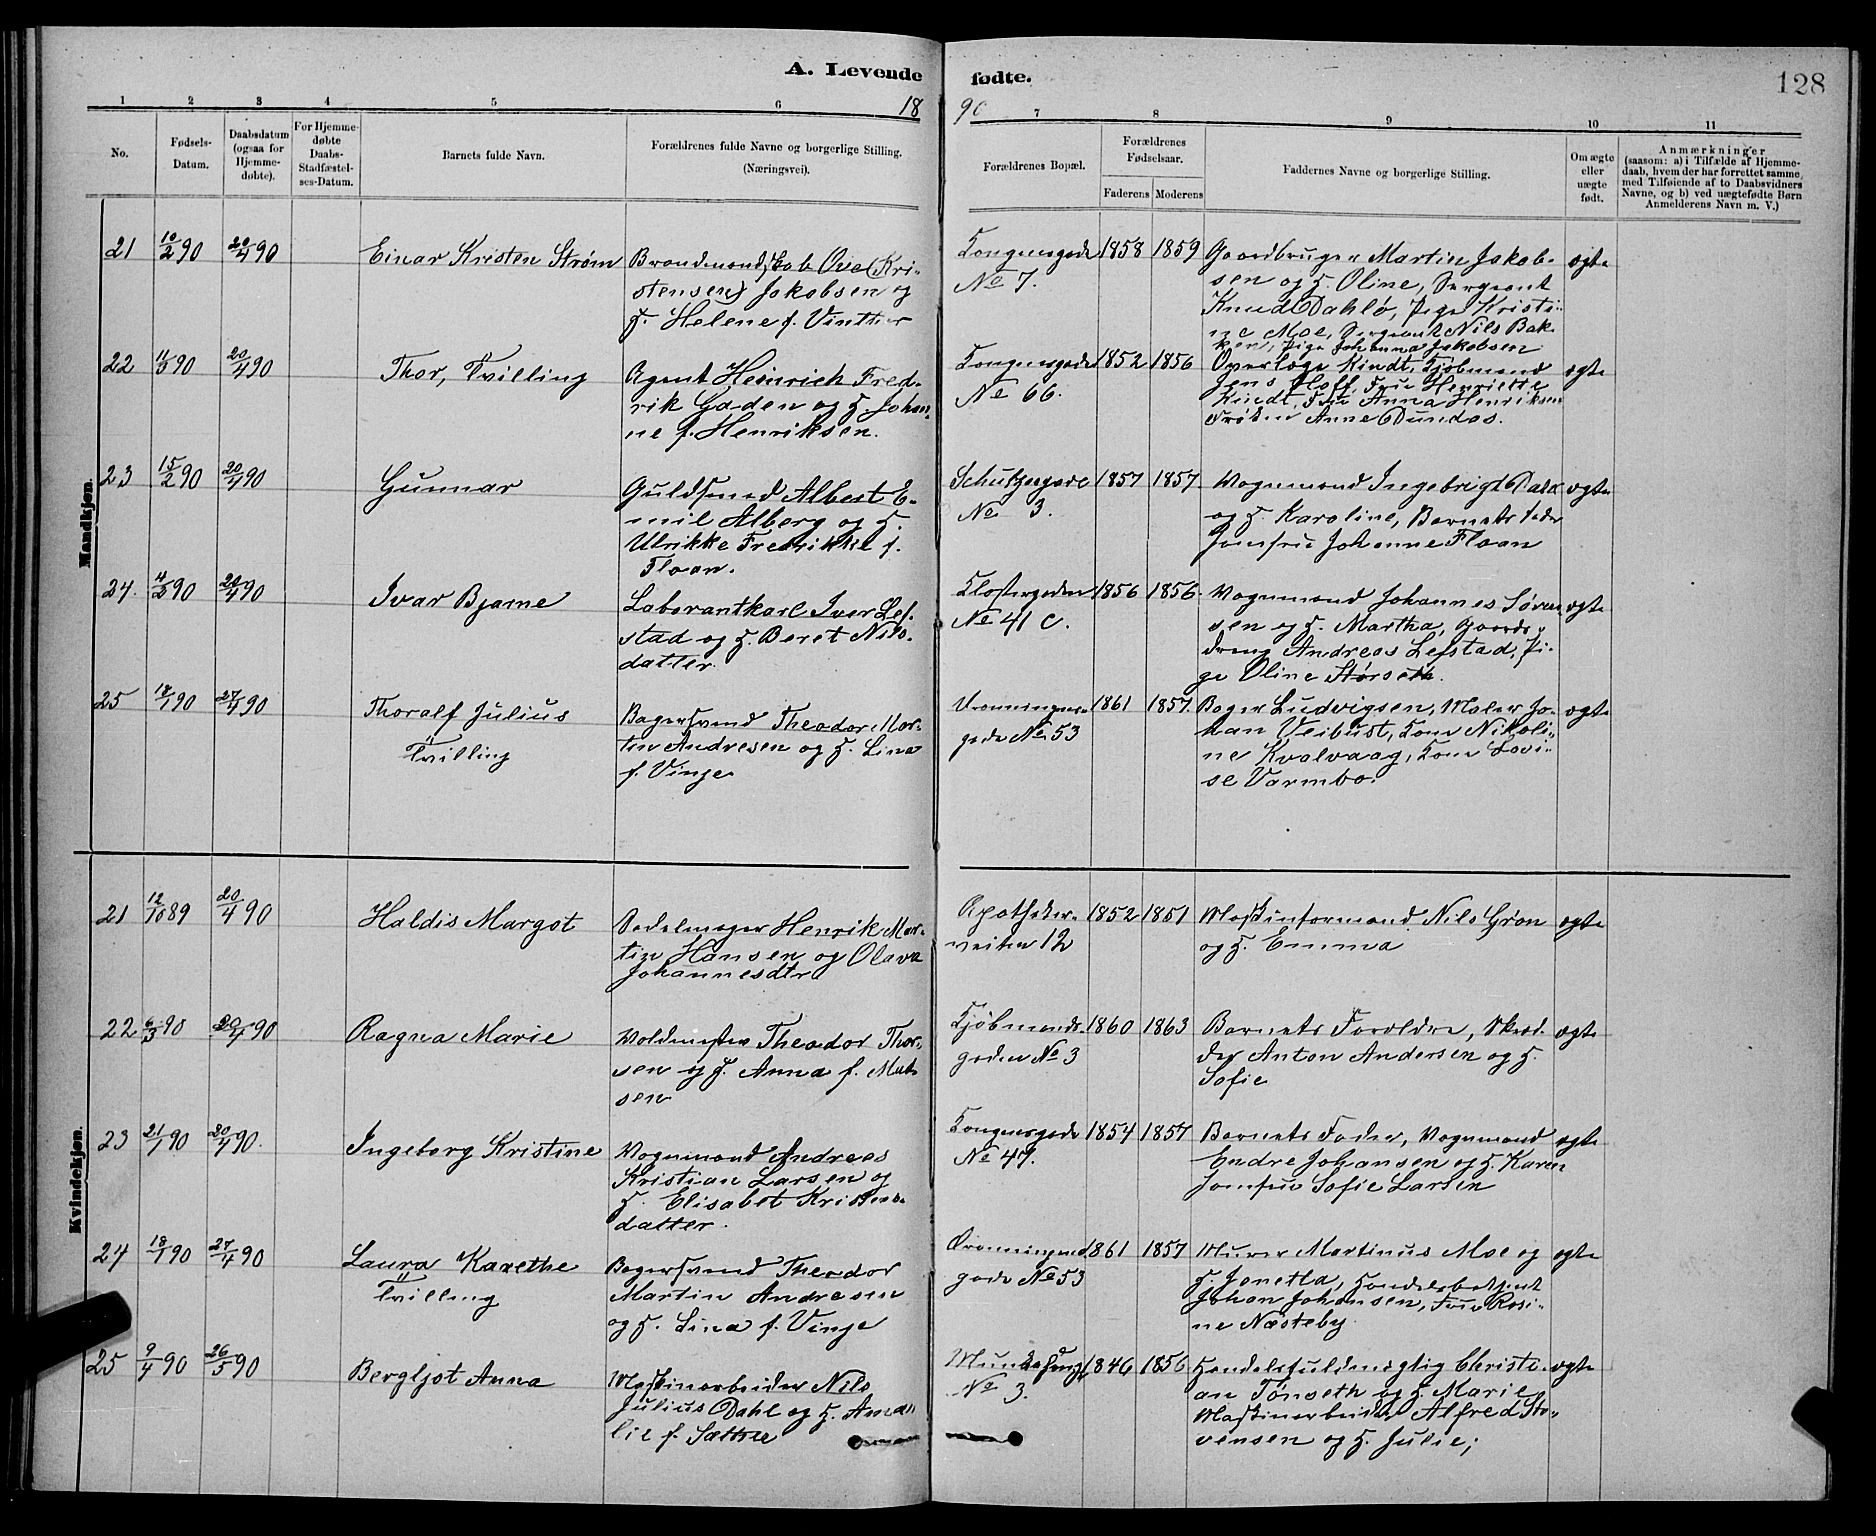 A. Levende fødte.
1890
128
1 2 3 4 5 6 7 8 9 10 11
No.
Fødsels-
Datum.
Daabsdatum
(ogsaa for
Hjemme-
døbte).
For Hjemme-
døbte
Daabs-
Stadfæstel-
ses-Datum.
Barnets fulde Navn.
Forældrenes fulde Navne og borgerlige Stilling.
(Næringsvei).
Forældrenes Bopæl.
Forældrenes
Fødselsaar.
Faderens Moderens
Faddernes Navne og borgerlige Stilling.
Om ægte
eller
uægte
født.
Anmærkninger
(saasom: a) i Tilfælde af Hjemme-
daab, hvem der har forrettet samme,
med Tilføiende af to Daabsvidners
Navne, og b) ved uægtefødte Børn
Anmelderens Navn m. V.)
Mandkjøn.
21 10/2 90 20/4 90 Einar Kristen Strøm
Brandmand Ove (Kri-
stensen) Jakobsen og
H. Helene f. Vinther
Kongensgade
No 7.
1858 1859
Gaardbruger Martin Jakob-
sen og H. Oline, Sergeant
Knud Dahlø, Pige Kristi-
ne Moe, Sergeant Nils Bak-
ken, Pige Johanna Jakobsen
ægte
22 11/3 90 20/4 90 Thor, Tvilling
Agent Heinrich Fred-
rik Gaden og H. Johan-
ne f. Henriksen.
Kongensgade
No 66.
1852 1856
Overlæge Kindt, Kjøbmand
Jens Hoff, Frue Henriette
Kindt, Frue Anna Henriksen
Frøken Anne Dundas.
ægte
23 15/2 90 20/4 90 Gunnar
Guldsmed Albert E-
mil Alberg og H.
Ulrikke Fredrikke f.
Floan.
Schultzegade
No 3.
1857 1857
Vognmand Ingebrigt Dahl
og H. Karoline, Barnets Fader
Jomfru Johanne Floan
ægte
24. 4/2 90 20/4 90 Ivar Bjarne
Laborantkarl Iver Lef-
stad og H. Beret Nils-
datter.
Klostergaden
No 41 c.
1856 1856.
Vognmand Johannes Søren-
sen og H. Martha, Gaards-
dreng Andreas Lefstad, Pi-
ge Oline Størseth.
ægte
25 18/1 90 27/4 90 Thoralf Julius
Tvilling
Bagersvend Theodor Mar-
tin Andresen og H. Lina
f. Vinje
Dronningens-
gade No 53
1861 1857.
Bager Ludvigsen, Maler Jo-
han Veibust, Kone Nikoli-
ne Kvalvaag, Kone Lovi-
se Varmbo.
ægte
Kvindekjøn.
21 12/10 89 20/4 90 Haldis Margot
Sadelmager Henrik Mar-
tin Hansen og Olava
Johannesdtr
Apotheker-
veiten 12
1852 1851
Maskinformand Nils Grøn
og H. Emma
ægte
22 6/3 90 20/4 90 Ragna Marie
Theodor Thor-
sen og H. Anna f. Mat-
sen
Kjøbmands-
gaden No 3
1860 1863
Barnets Forældre, Skræd-
der Anton Andersen og H.
Sofie
ægte
23 21/1 90 20/4 90. Ingeborg Kristine
Vognmand Andreas
Kristian Larsen og
H. Elisabet Kristens-
datter.
Kongensgade
No 47.
1854 1857
Barnets Fader, Vognmand
Endre Johansen og H. Karen
Jomfru Sofie Larsen
ægte
24 18/1 90 27/4 90 Laura Karethe
Tvilling
Bagersvend Theodor
Martin Andresen
og H. Lina f. Vinje
Dronningens
gade No 53
1861 1857
Murer Martinus Moe og
H. Jonetta, Handelsbetjent
Johan Johansen, Frue Rosi-
ne Næsteby.
ægte
25 9/4 90 26/5 90 Bergljot Anna
Maskinarbeider Nils
Julius Dahl og H. Ama-
lie f. Sættre
No 3.
1846 1856.
Handelsfuldmægtig Christi-
an Tønseth og H. Marie
Maskinarbeider Alfred Sto-
vensen og H. Julie;
ægte